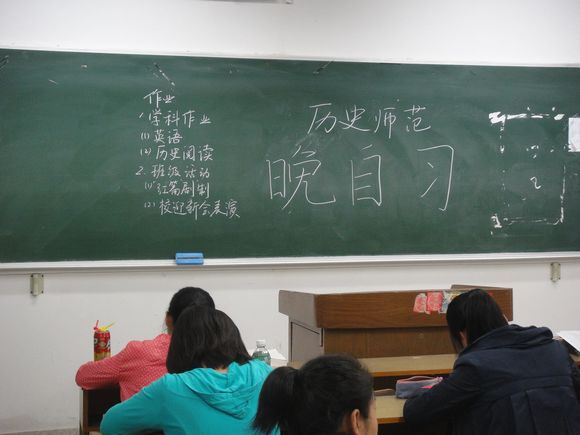 作业
1. 学科作业
(1) 英语
(2) 历史阅读
2. 班级活动
(1) 红篇剧制
(2) 校迎新会表演
历史师范
晚自习
2